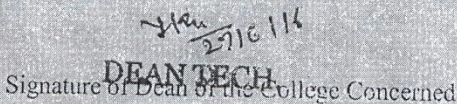 27/6/16
DEAN TECH.
Signature of Dean of the College Concerned